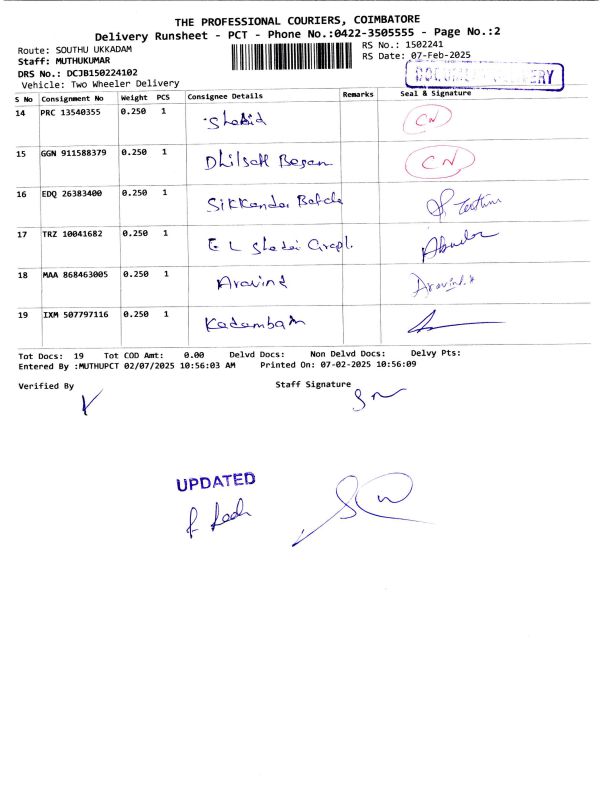 THE PROFESSIONAL COURIERS, COIMBATORE
Delivery Runsheet - PCT - Phone No.:0422-3505555 - Page No.:2
Route: SOUTHU UKKADAM RS No.: 1502241
Staff: MUTHUKUMAR RS Date: 07-Feb-2025
DRS No.: DCJB150224102
Vehicle: Two Wheeler Delivery
S No Consignment No Weight PCS Consignee Details Remarks Seal & Signature
14 PRC 13540355 0.250 1 Shahid CN
15 GGN 911588379 0.250 1 CN
16 EDQ 26383400 0.250 1 Sikkandar
17 TRZ 10041682 0.250 1 E L
18 MAA 868463005 0.250 1 Aravind Aravind
19 IXM 507797116 0.250 1 Kadambam
Tot Docs: 19 Tot COD Amt: 0.00 Delvd Docs: Non Delvd Docs: Delvy Pts:
Entered By :MUTHUPCT 02/07/2025 10:56:03 AM Printed On: 07-02-2025 10:56:09
Verified By Staff Signature
UPDATED